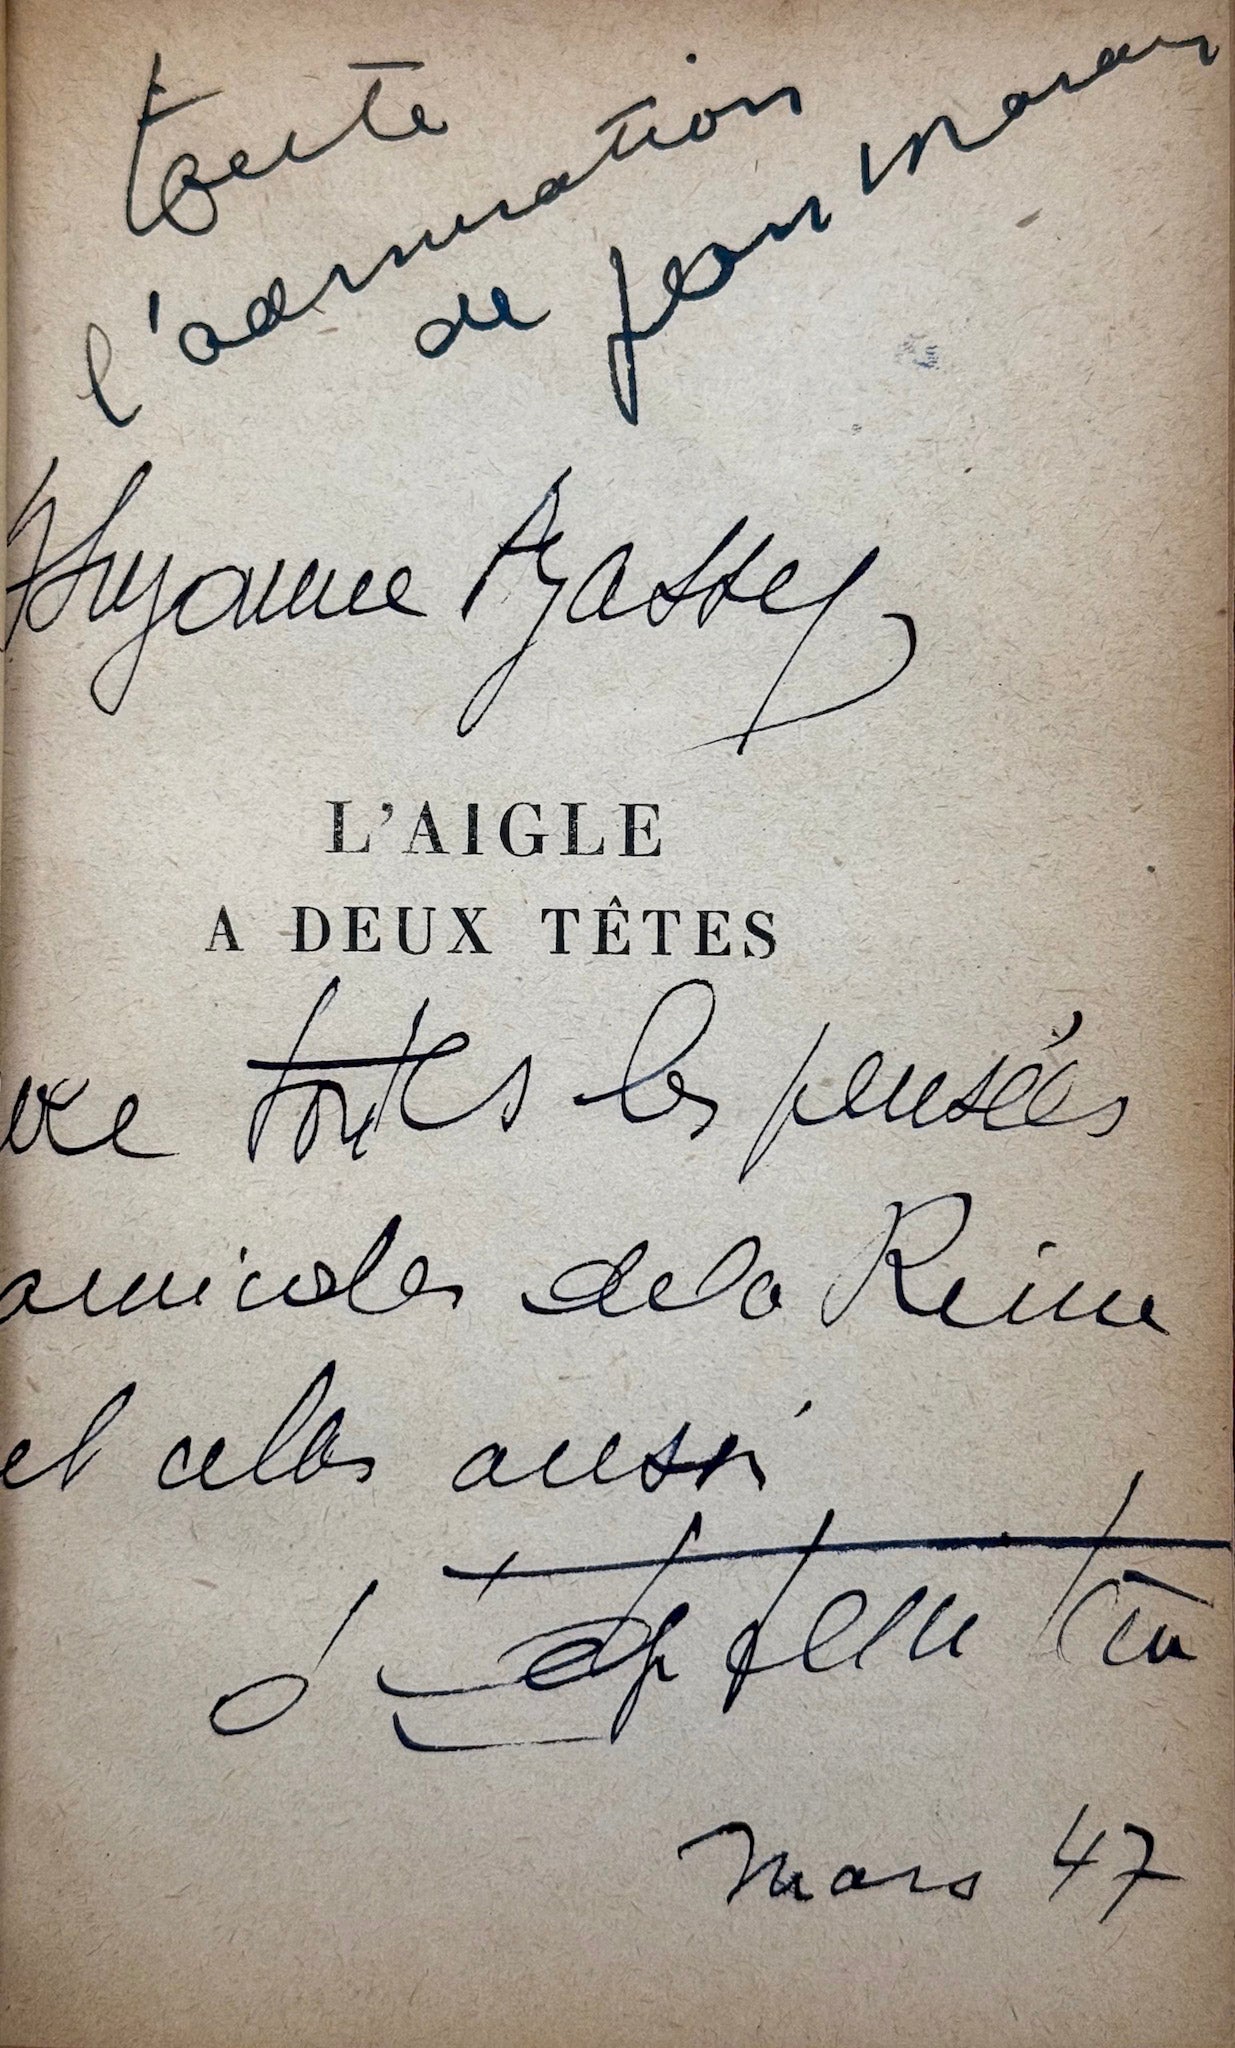 toute
l'admiration
de Jean Marais
L'AIGLE
A DEUX TÊTES
avec toutes les pensées
amicales de la Reine
et celles aussi
mars 47